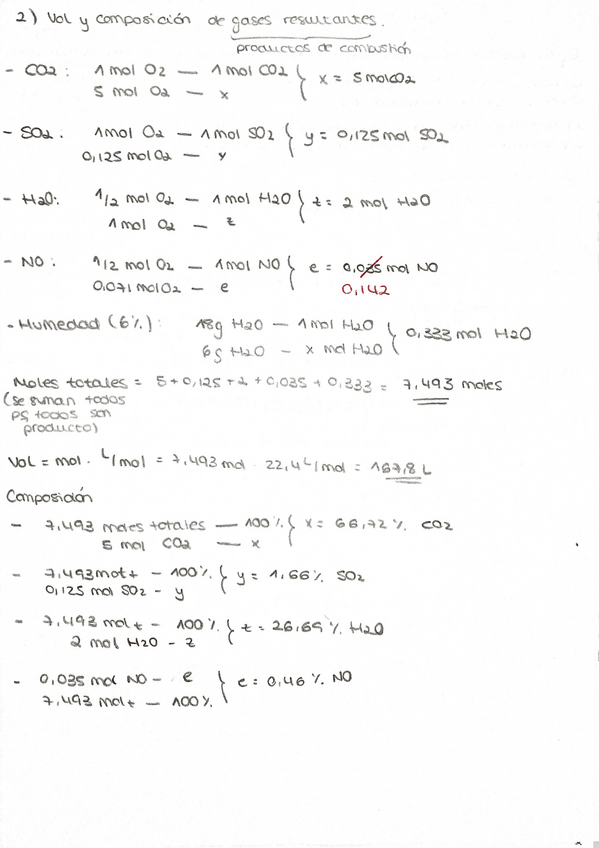 2) Vol y composición de gases resultantes.
productos de combustión
- CO2: 1 mol O2 — 1 mol CO2 } x = 5 mol CO2
5 mol O2 — x
- SO2: 1 mol O2 — 1 mol SO2 } y = 0,125 mol SO2
0,125 mol O2 — y
- H2O: 1/2 mol O2 — 1 mol H2O } z = 2 mol H2O
1 mol O2 — z
- NO: 1/2 mol O2 — 1 mol NO } e = 0,035 mol NO
0,071 mol O2 — e 0,142
- Humedad (6%): 18g H2O — 1 mol H2O } 0,333 mol H2O
6g H2O — x mol H2O
Moles totales = 5 + 0,125 + 2 + 0,035 + 0,333 = 7,493 moles
(se suman todos
pq todos son
producto)
Vol = mol · L/mol = 7,493 mol · 22,4 L/mol = 167,8 L
Composición
- 7,493 moles totales — 100% } x = 66,72% CO2
5 mol CO2 — x
- 7,493 mol t — 100% } y = 1,66% SO2
0,125 mol SO2 - y
- 7,493 mol t — 100% } z = 26,69% H2O
2 mol H2O - z
- 0,035 mol NO — e } e = 0,46% NO
7,493 mol t — 100%